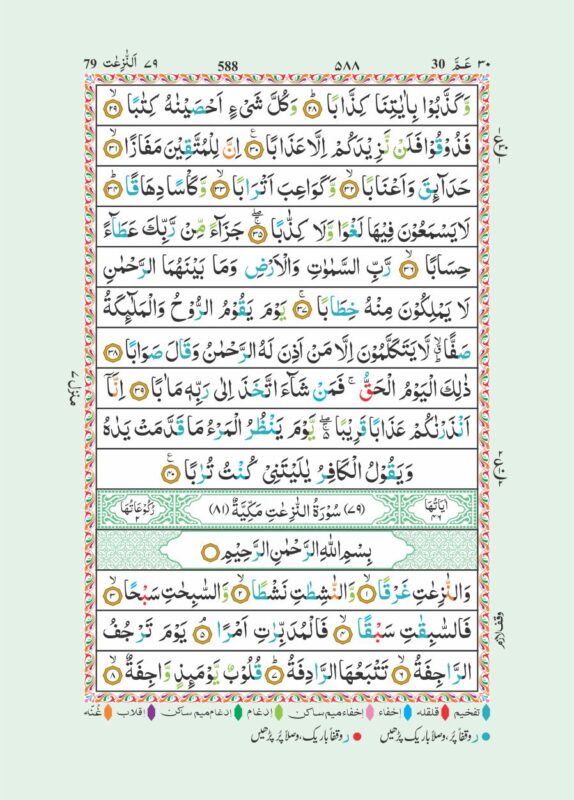 79 اَلنّٰزِعٰت ٧٩ 588 ٥٨٨ 30 عَمَّ ٣٠
وَّ كَذَّبُوْا بِاٰيٰتِنَا كِذَّابًا ﴿٢٨﴾ وَكُلَّ شَيْءٍ اَحْصَيْنٰهُ كِتٰبًا ﴿٢٩﴾
فَذُوْقُوْا فَلَنْ نَّزِيْدَكُمْ اِلَّا عَذَابًا ﴿٣٠﴾ اِنَّ لِلْمُتَّقِيْنَ مَفَازًا ﴿٣١﴾
حَدَآئِقَ وَاَعْنَابًا ﴿٣٢﴾ وَّكَوَاعِبَ اَتْرَابًا ﴿٣٣﴾ وَّكَاْسًا دِهَاقًا ﴿٣٤﴾
لَا يَسْمَعُوْنَ فِيْهَا لَغْوًا وَّلَا كِذّٰبًا ﴿٣٥﴾ جَزَآءً مِّنْ رَّبِّكَ عَطَآءً
حِسَابًا ﴿٣٦﴾ رَّبِّ السَّمٰوٰتِ وَالْاَرْضِ وَمَا بَيْنَهُمَا الرَّحْمٰنِ
لَا يَمْلِكُوْنَ مِنْهُ خِطَابًا ﴿٣٧﴾ يَوْمَ يَقُوْمُ الرُّوْحُ وَالْمَلٰٓئِكَةُ
صَفًّا لَّا يَتَكَلَّمُوْنَ اِلَّا مَنْ اَذِنَ لَهُ الرَّحْمٰنُ وَقَالَ صَوَابًا ﴿٣٨﴾
ذٰلِكَ الْيَوْمُ الْحَقُّ ۚ فَمَنْ شَآءَ اتَّخَذَ اِلٰى رَبِّهٖ مَاٰبًا ﴿٣٩﴾ اِنَّآ
اَنْذَرْنٰكُمْ عَذَابًا قَرِيْبًا ۖ يَّوْمَ يَنْظُرُ الْمَرْءُ مَا قَدَّمَتْ يَدٰهُ
وَيَقُوْلُ الْكَافِرُ يٰلَيْتَنِيْ كُنْتُ تُرٰبًا ﴿٤٠﴾
اٰيَاتُهَا ٤٦ (٧٩) سُوْرَةُ النّٰزِعٰتِ مَكِّيَّةٌ (٨١) رُكُوْعَاتُهَا ٢
بِسْمِ اللّٰهِ الرَّحْمٰنِ الرَّحِيْمِ
وَالنّٰزِعٰتِ غَرْقًا ﴿١﴾ وَّالنّٰشِطٰتِ نَشْطًا ﴿٢﴾ وَّالسّٰبِحٰتِ سَبْحًا ﴿٣﴾
فَالسّٰبِقٰتِ سَبْقًا ﴿٤﴾ فَالْمُدَبِّرٰتِ اَمْرًا ﴿٥﴾ يَوْمَ تَرْجُفُ
الرَّاجِفَةُ ﴿٦﴾ تَتْبَعُهَا الرَّادِفَةُ ﴿٧﴾ قُلُوْبٌ يَّوْمَئِذٍ وَّاجِفَةٌ ﴿٨﴾
منزل ٧
وقف لازم
تفخیم قلقلہ اخفاء اخفاء میم ساکن ادغام ادغام میم ساکن اقلاب غنّہ
ر وقفاً پُر، وصلاً باریک پڑھیں ر وقفاً باریک، وصلاً پُر پڑھیں